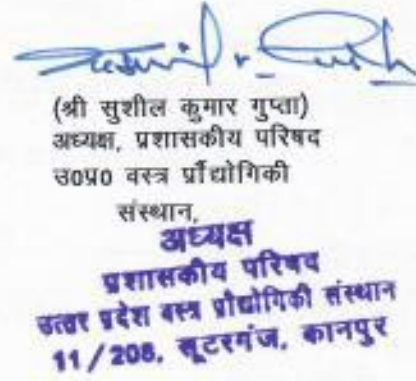 (श्री सुशील कुमार गुप्ता)
अध्यक्ष, प्रशासकीय परिषद
उ0प्र0 वस्त्र प्रौद्योगिकी
संस्थान,
अध्यक्ष
प्रशासकीय परिषद
उत्तर प्रदेश वस्त्र प्रौद्योगिकी संस्थान
11/208, सूटरगंज, कानपुर